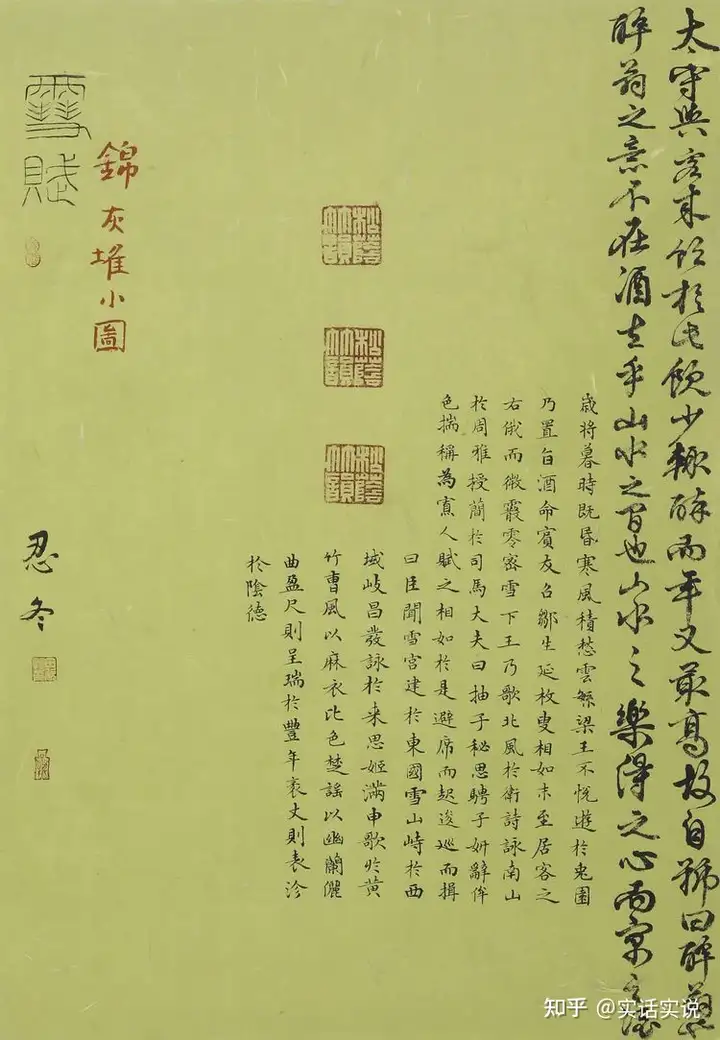 太守與客来飲於此飲少輒醉而年又最高故自號曰醉翁也
醉翁之意不在酒在乎山水之間也山水之樂得之心而寓之酒
歲將暮時既昏寒風積愁雲繁梁王不悅遊於兔園
乃置旨酒命賓友召鄒生延枚叟相如末至居客之
右俄而微霰零密雪下王乃歌北風於衛詩詠南山
於周雅授簡於司馬大夫曰抽子秘思騁子妍辭侔
色揣稱為寡人賦之相如於是避席而起逡巡而揖
曰臣聞雪宮建於東國雪山峙於西
域岐昌發詠於来思姬滿申歌於黃
竹曹風以麻衣比色楚謠以幽蘭儷
曲盈尺則呈瑞於豐年袤丈則表沴
於陰德
松蔭竹韻
松蔭竹韻
松蔭竹韻
錦灰堆小圖
雪賦
忍冬
知乎 @实话实说